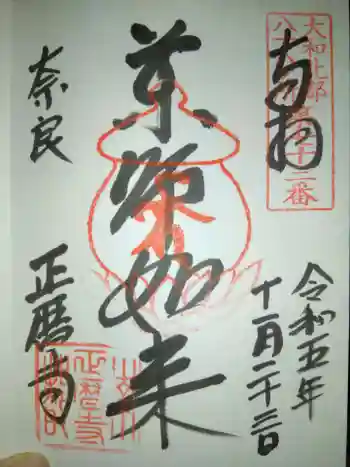 奉拝
大和北部
八十八
十二番
令和五年
十一月二十三日
薬師如来
奈良
正暦寺
正暦寺